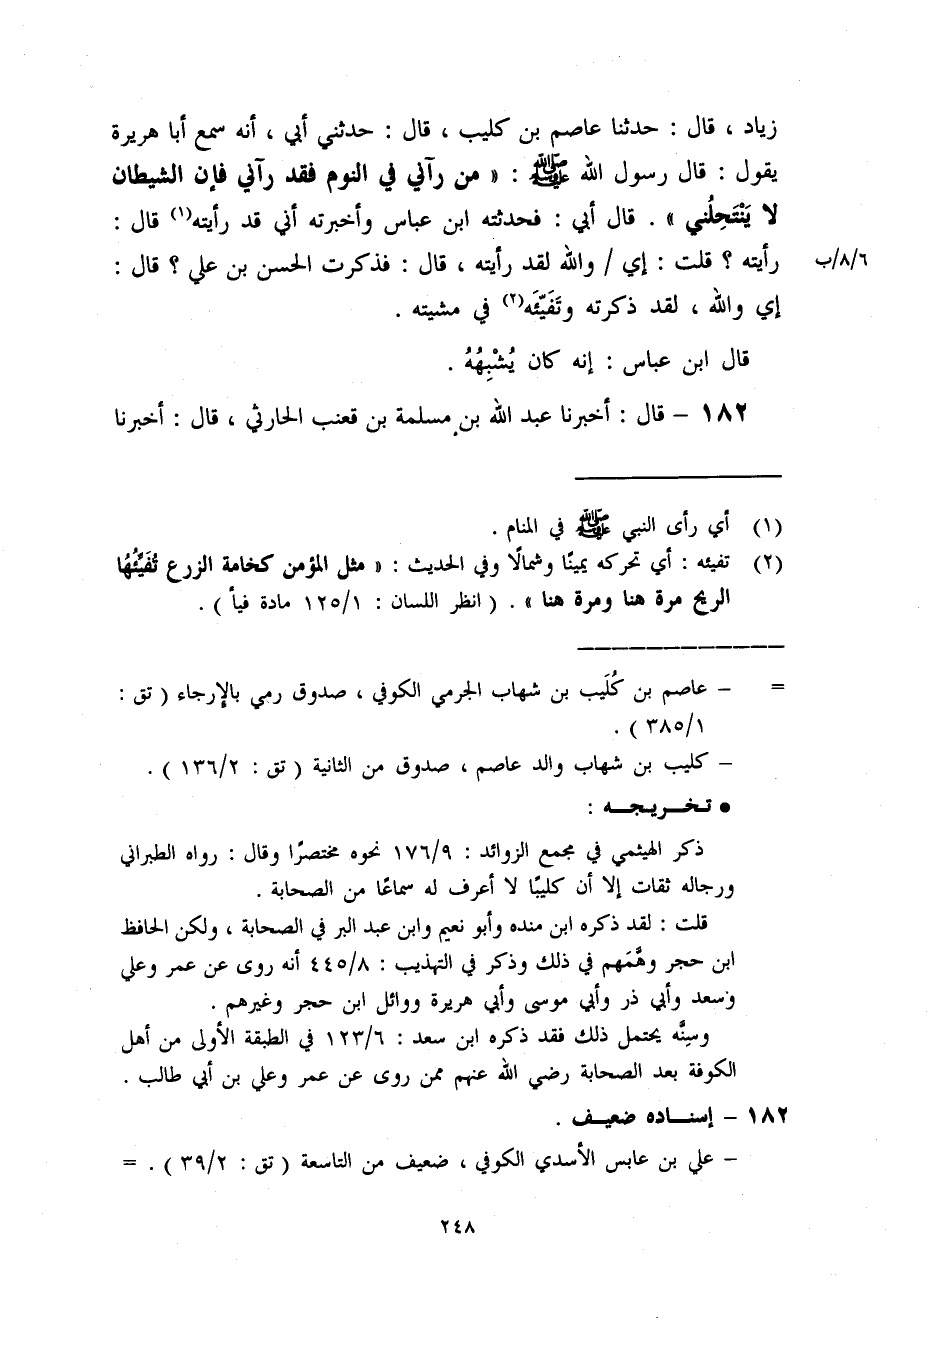 زياد ، قال : حدثنا عاصم بن كليب ، قال : حدثني أبي ، أنه سمع أبا هريرة
يقول : قال رسول الله ﷺ : « من رآني في النوم فقد رآني فإن الشيطان
لا يَنْتَحِلُني » . قال أبي : فحدثته ابن عباس وأخبرته أني قد رأيته(١) قال :
رأيته ؟ قلت : إي / والله لقد رأيته ، قال : فذكرت الحسن بن علي ؟ قال : ٦/٨/ب
إي والله ، لقد ذكرته وتَفَيّئَه(٢) في مشيته .
قال ابن عباس : إنه كان يُشْبِهُهُ .
١٨٢ – قال : أخبرنا عبد الله بن مسلمة بن قعنب الحارثي ، قال : أخبرنا
(١) أي رأى النبي ﷺ في المنام .
(٢) تفيئه : أي تحركه يمينًا وشمالًا وفي الحديث : « مثل المؤمن كخامة الزرع تُفَيِّئُهَا
الريح مرة هنا ومرة هنا » . ( انظر اللسان : ١٢٥/١ مادة فيأ ) .
= – عاصم بن كُلَيب بن شهاب الجرمي الكوفي ، صدوق رمي بالإرجاء ( تق :
٣٨٥/١ ) .
– كليب بن شهاب والد عاصم ، صدوق من الثانية ( تق : ١٣٦/٢ ) .
• تـخـــريـجـــه :
ذكر الهيثمي في مجمع الزوائد : ١٧٦/٩ نحوه مختصرًا وقال : رواه الطبراني
ورجاله ثقات إلا أن كليبًا لا أعرف له سماعًا من الصحابة .
قلت : لقد ذكره ابن منده وأبو نعيم وابن عبد البر في الصحابة ، ولكن الحافظ
ابن حجر وهَّمَهم في ذلك وذكر في التهذيب : ٤٤٥/٨ أنه روى عن عمر وعلي
وسعد وأبي ذر وأبي موسى وأبي هريرة ووائل ابن حجر وغيرهم .
وسِنَّه يحتمل ذلك فقد ذكره ابن سعد : ١٢٣/٦ في الطبقة الأولى من أهل
الكوفة بعد الصحابة رضي الله عنهم ممن روى عن عمر وعلي بن أبي طالب .
١٨٢ – إسنـــاده ضعيـــف .
– علي بن عابس الأسدي الكوفي ، ضعيف من التاسعة ( تق : ٣٩/٢ ) . =
٢٤٨